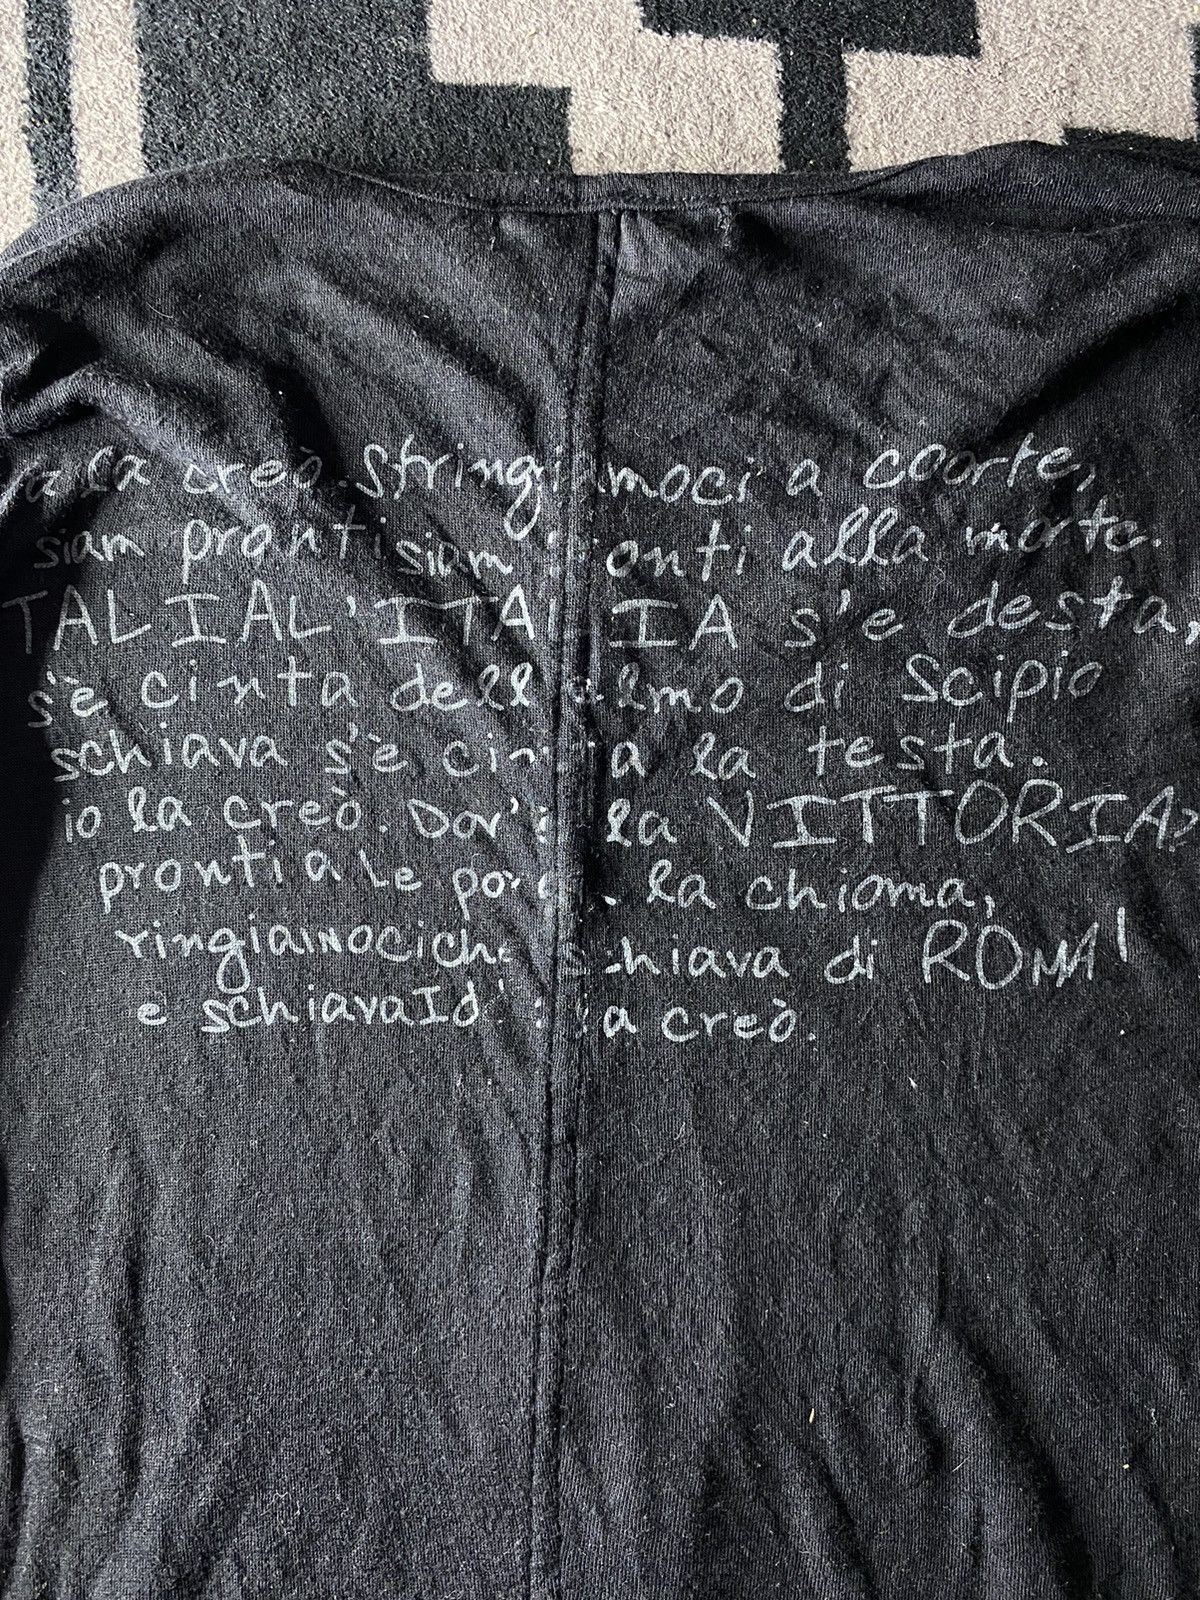 la creò. Stringiamoci a coorte,
siam pronti siam pronti alla morte.
TALIAL'ITALIA s'e desta,
s'è cinta dell elmo di Scipio
schiava s'è cinta la testa.
io la creò. Dov'è la VITTORIA?
pronti a Le porga la chioma,
ringiamociche schiava di ROMA!
e schiavaId creò.